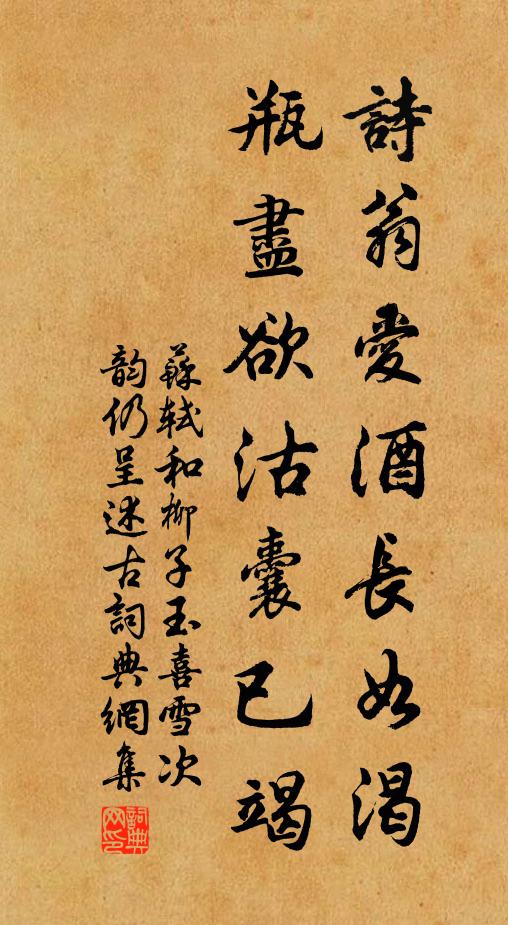 詩翁愛酒長如渴
瓶盡欲沽囊已竭
蘇軾和柳子玉喜雪次
韵仍呈述古詞典網集
詞典
网印